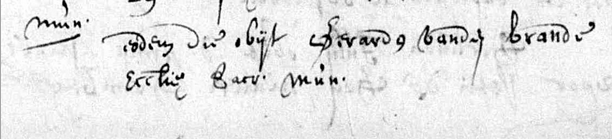 mun.
eodem die obijt Gerardꝰ vanden brande
Ecclię Sacr. mun.